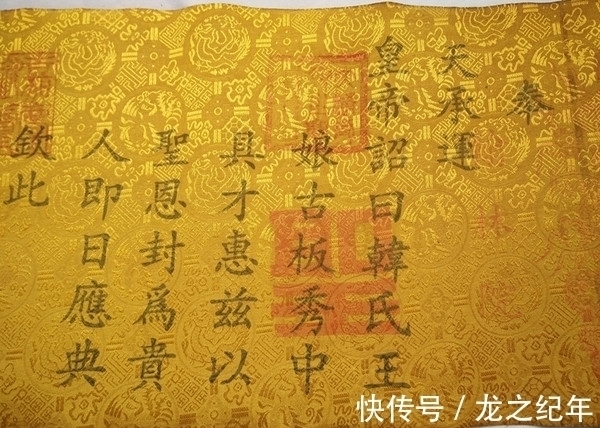 奉
天承運
皇帝詔曰韓氏王
娘古板秀中
具才惠兹以
聖恩封為貴
人即日應典
欽此
快传号 / 龙之纪年